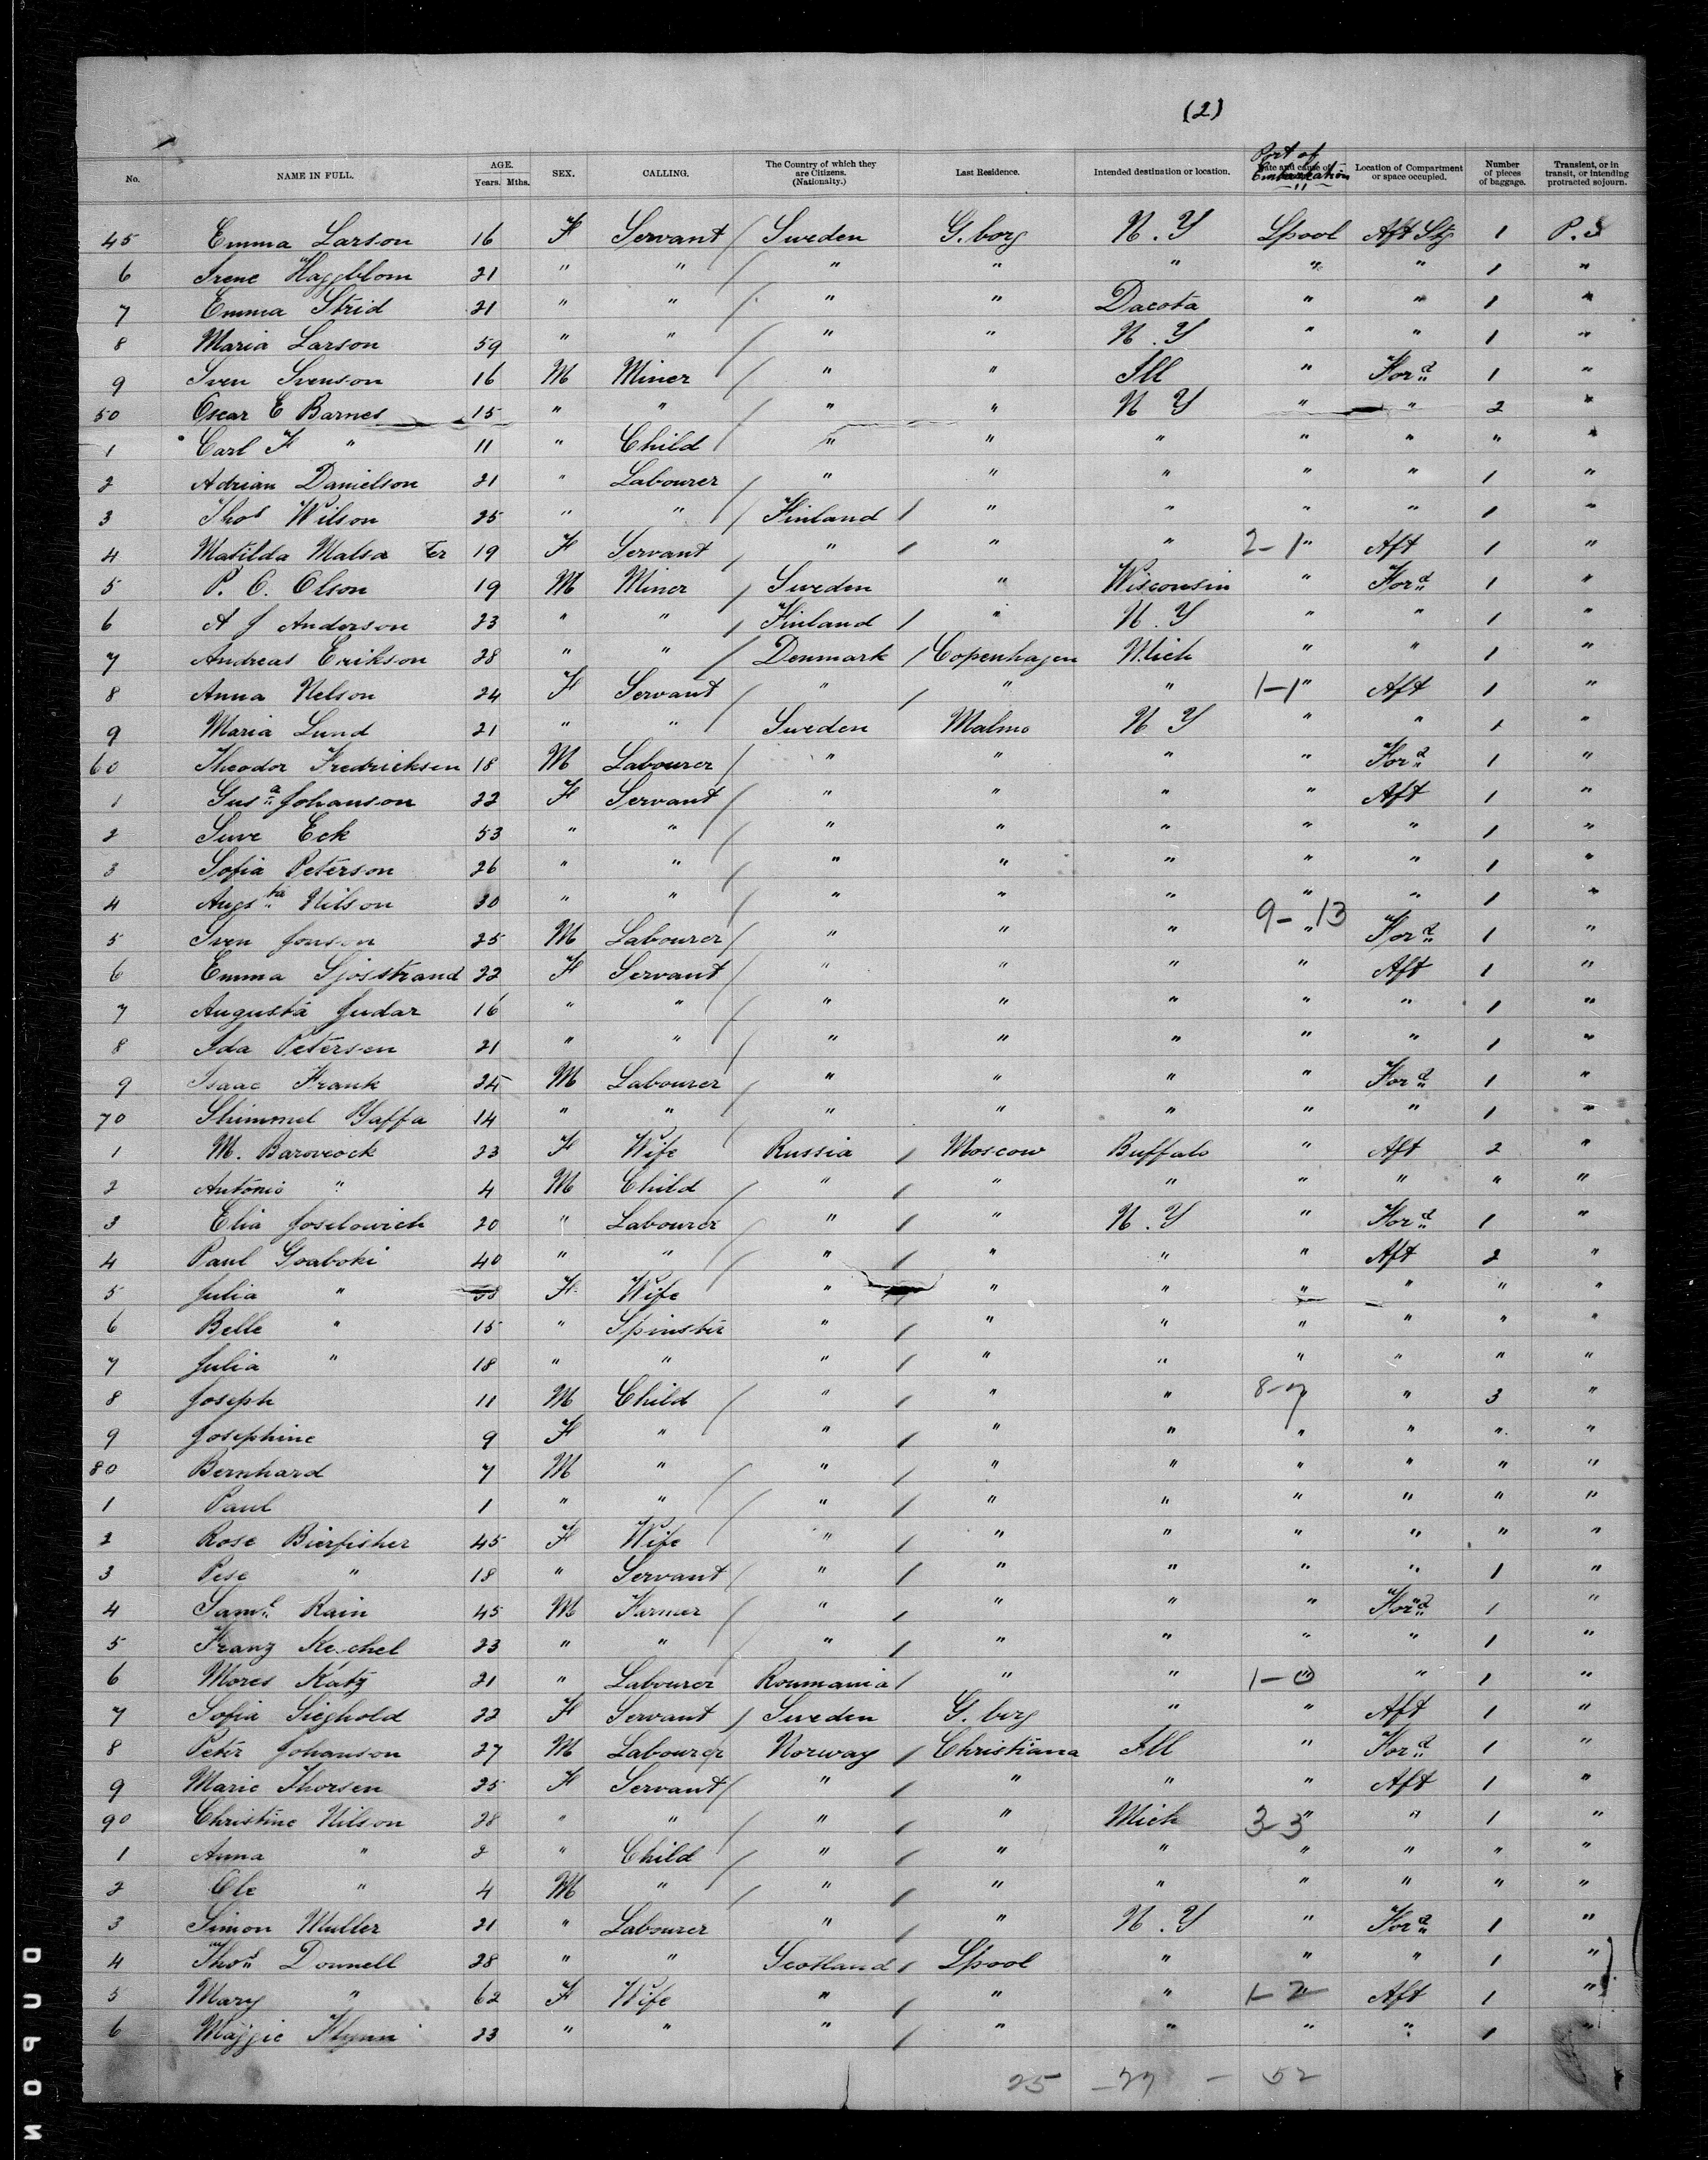 (2)
No. NAME IN FULL. AGE. Years. Mths. SEX. CALLING. The Country of which they are Citizens. (Nationality.) Last Residence. Intended destination or location. Port of Embarkation Location of Compartment or space occupied. Number of pieces of baggage. Transient, or in transit, or intending protracted sojourn.
45 Emma Larson 16 F Servant / Sweden G.borg N.Y Lpool Aft Stg 1 P.S
6 Irene Haggblom 21 " " / " " " " " 1 "
7 Emma Strid 21 " " / " " Dacota " " 1 "
8 Maria Larson 59 " " / " " N.Y " " 1 "
9 Sven Svenson 16 M Miner / " " Ill " Ford 1 "
50 Oscar E Barnes 15 " " / " " N Y " " 2 "
1 Carl F " 11 " Child / " " " " " " "
2 Adrian Danielson 21 " Labourer / " " " " " 1 "
3 Thos Wilson 25 " " / Finland / " " " " 1 "
4 Matilda Malsa Ter 19 F Servant / " / " " 2-1 " Aft 1 "
5 P. O. Olson 19 M Miner / Sweden " Wisconsin " Ford 1 "
6 A J Anderson 23 " " / Finland / " N.Y " " 1 "
7 Andreas Erikson 28 " " / Denmark / Copenhagen Mich " " 1 "
8 Anna Nelson 24 F Servant / " / " " 1-1 " Aft 1 "
9 Maria Lund 21 " " / Sweden Malmo N Y " " 1 "
60 Theodor Fredricksen 18 M Labourer / " " " " Ford 1 "
1 Gusa Johanson 22 F Servant / " " " " Aft 1 "
2 Suve Eck 53 " " / " " " " " 1 "
3 Sofia Peterson 26 " " / " " " " " 1 "
4 Augsta Nilson 30 " " / " " " " " 1 "
5 Sven Jonson 25 M Labourer / " " " 9-13 " Ford 1 "
6 Emma Sjosstrand 22 F Servant / " " " " Aft 1 "
7 Augusta Judar 16 " " / " " " " " 1 "
8 Ida Petersen 21 " " / " " " " " 1 "
9 Isaac Frank 24 M Labourer / " " " " Ford 1 "
70 Shimmel Yaffa 14 " " / " " " " " 1 "
1 M. Barovcock 23 F Wife Russia / Moscow Buffalo " Aft 2 "
2 Antonio " 4 M Child / " / " " " " " "
3 Elia Joselowich 20 " Labourer / " / " N.Y " Ford 1 "
4 Paul Gsaboki 40 " " / " / " " " Aft 2 "
5 Julia " 38 F Wife " " " " " " "
6 Belle " 15 " Spinster " / " " " " " "
7 Julia " 18 " " " / " " " " " "
8 Joseph 11 M Child / " / " " 8-7 " 3 "
9 Josephine 9 F " " / " " " " " "
80 Bernhard 7 M " / " / " " " " " "
1 Paul 1 " " / " / " " " " " "
2 Rose Bierfisher 45 F Wife / " / " " " " " "
3 Pese " 18 " Servant / " / " " " " 1 "
4 Saml Rain 45 M Farmer / " / " " " Ford 1 "
5 Franz 23 " " / " / " " " " 1 "
6 Mores Katz 21 " Labourer Roumania / " " 1-0 " " 1 "
7 Sofia Sieghold 22 F Servant / Sweden G.borg " " Aft 1 "
8 Peter Johanson 27 M Labourer Norway / Christiana Ill " Ford 1 "
9 Marie Thorsen 25 F Servant / " / " " " Aft 1 "
90 Christine Nilson 28 " " / " / " Mich 3-3 " " 1 "
1 Anna " 2 " Child / " / " " " " " "
2 Ole " 4 M " / " / " " " " " "
3 Simon Muller 21 " Labourer " / " N.Y " Ford 1 "
4 Thos Donnell 28 " " Scotland / Lpool " " " 1 "
5 Mary " 62 F Wife " / " " 1-2 " Aft 1 "
6 Maggie Flynn 23 " " " / " " " " 1 "
25 - 27 - 52